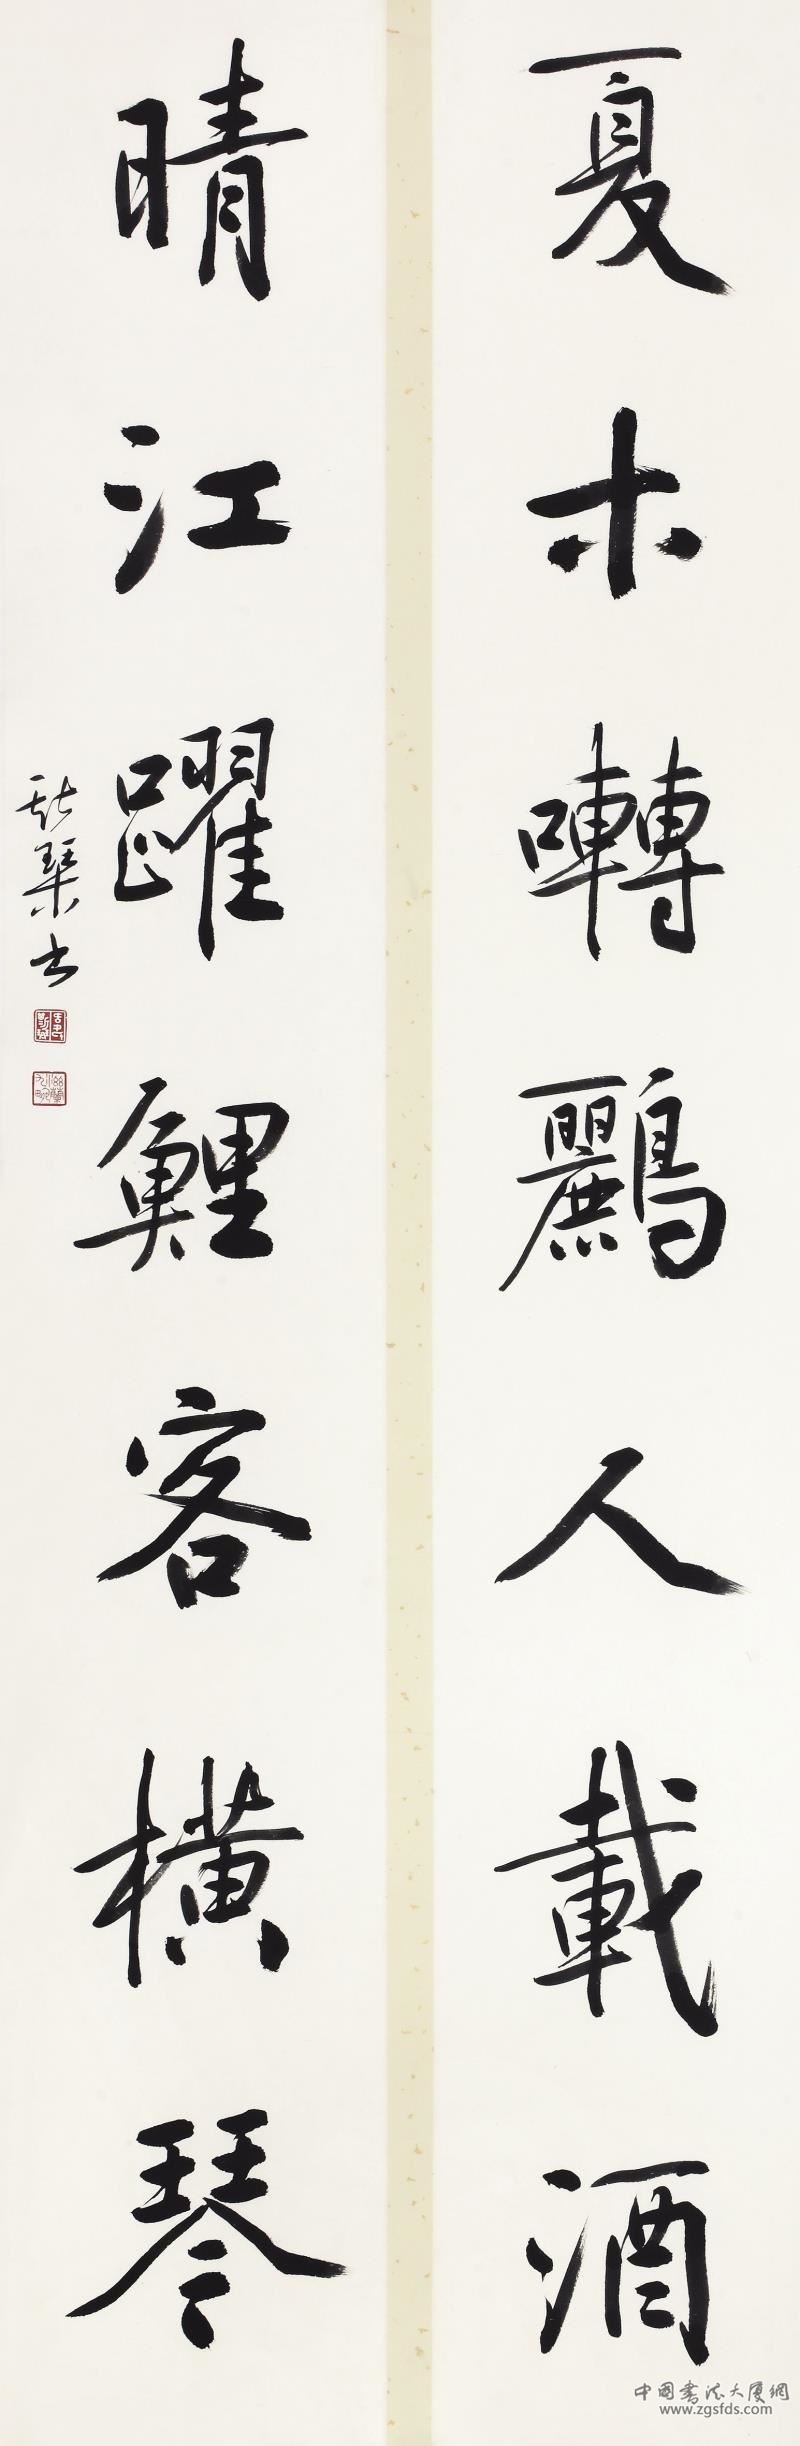 夏木囀鸝人載酒
晴江躍鯉客橫琴
書
中国书法大厦網
www.zgsfds.com